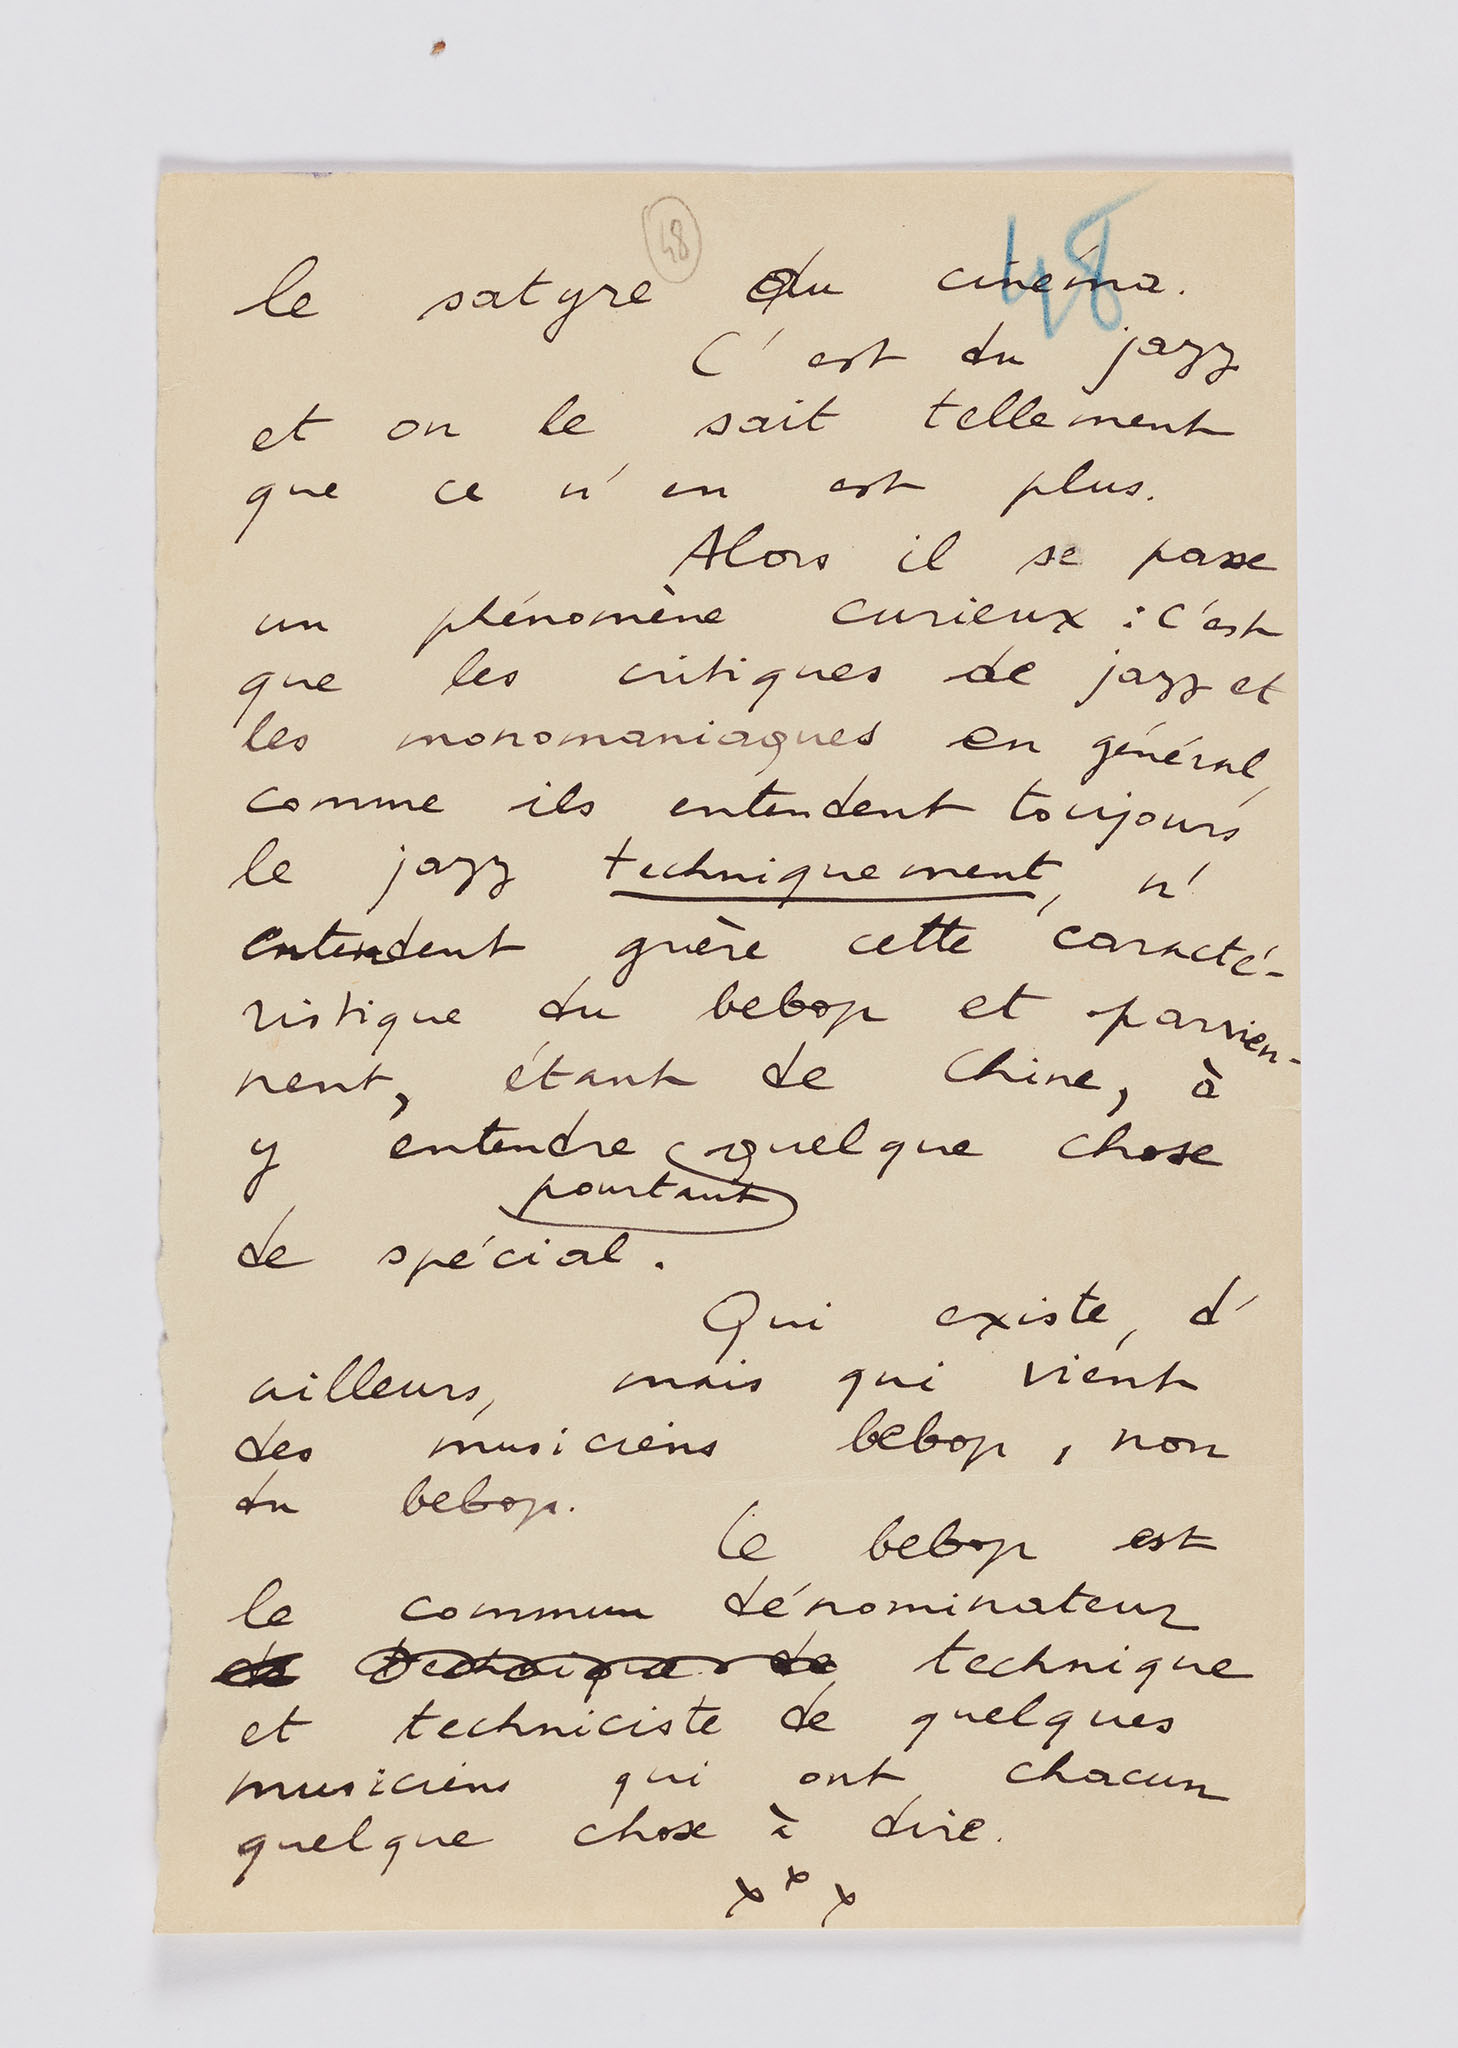 48
48
le satyre du cinéma.
C'est du jazz
et on le sait tellement
que ce n'en est plus.
Alors il se passe
un phénomène curieux : c'est
que les critiques de jazz et
les monomaniaques en général,
comme ils entendent toujours
le jazz techniquement, n'
entendent guère cette caracté-
ristique du bebop et parvien-
nent, étant de Chine, à
y entendre quelque chose
pourtant
de spécial.
Qui existe, d'
ailleurs, mais qui vient
des musiciens bebop, non
du bebop.
Le bebop est
le commun dénominateur
technique
et techniciste de quelques
musiciens qui ont chacun
quelque chose à dire.
x x x